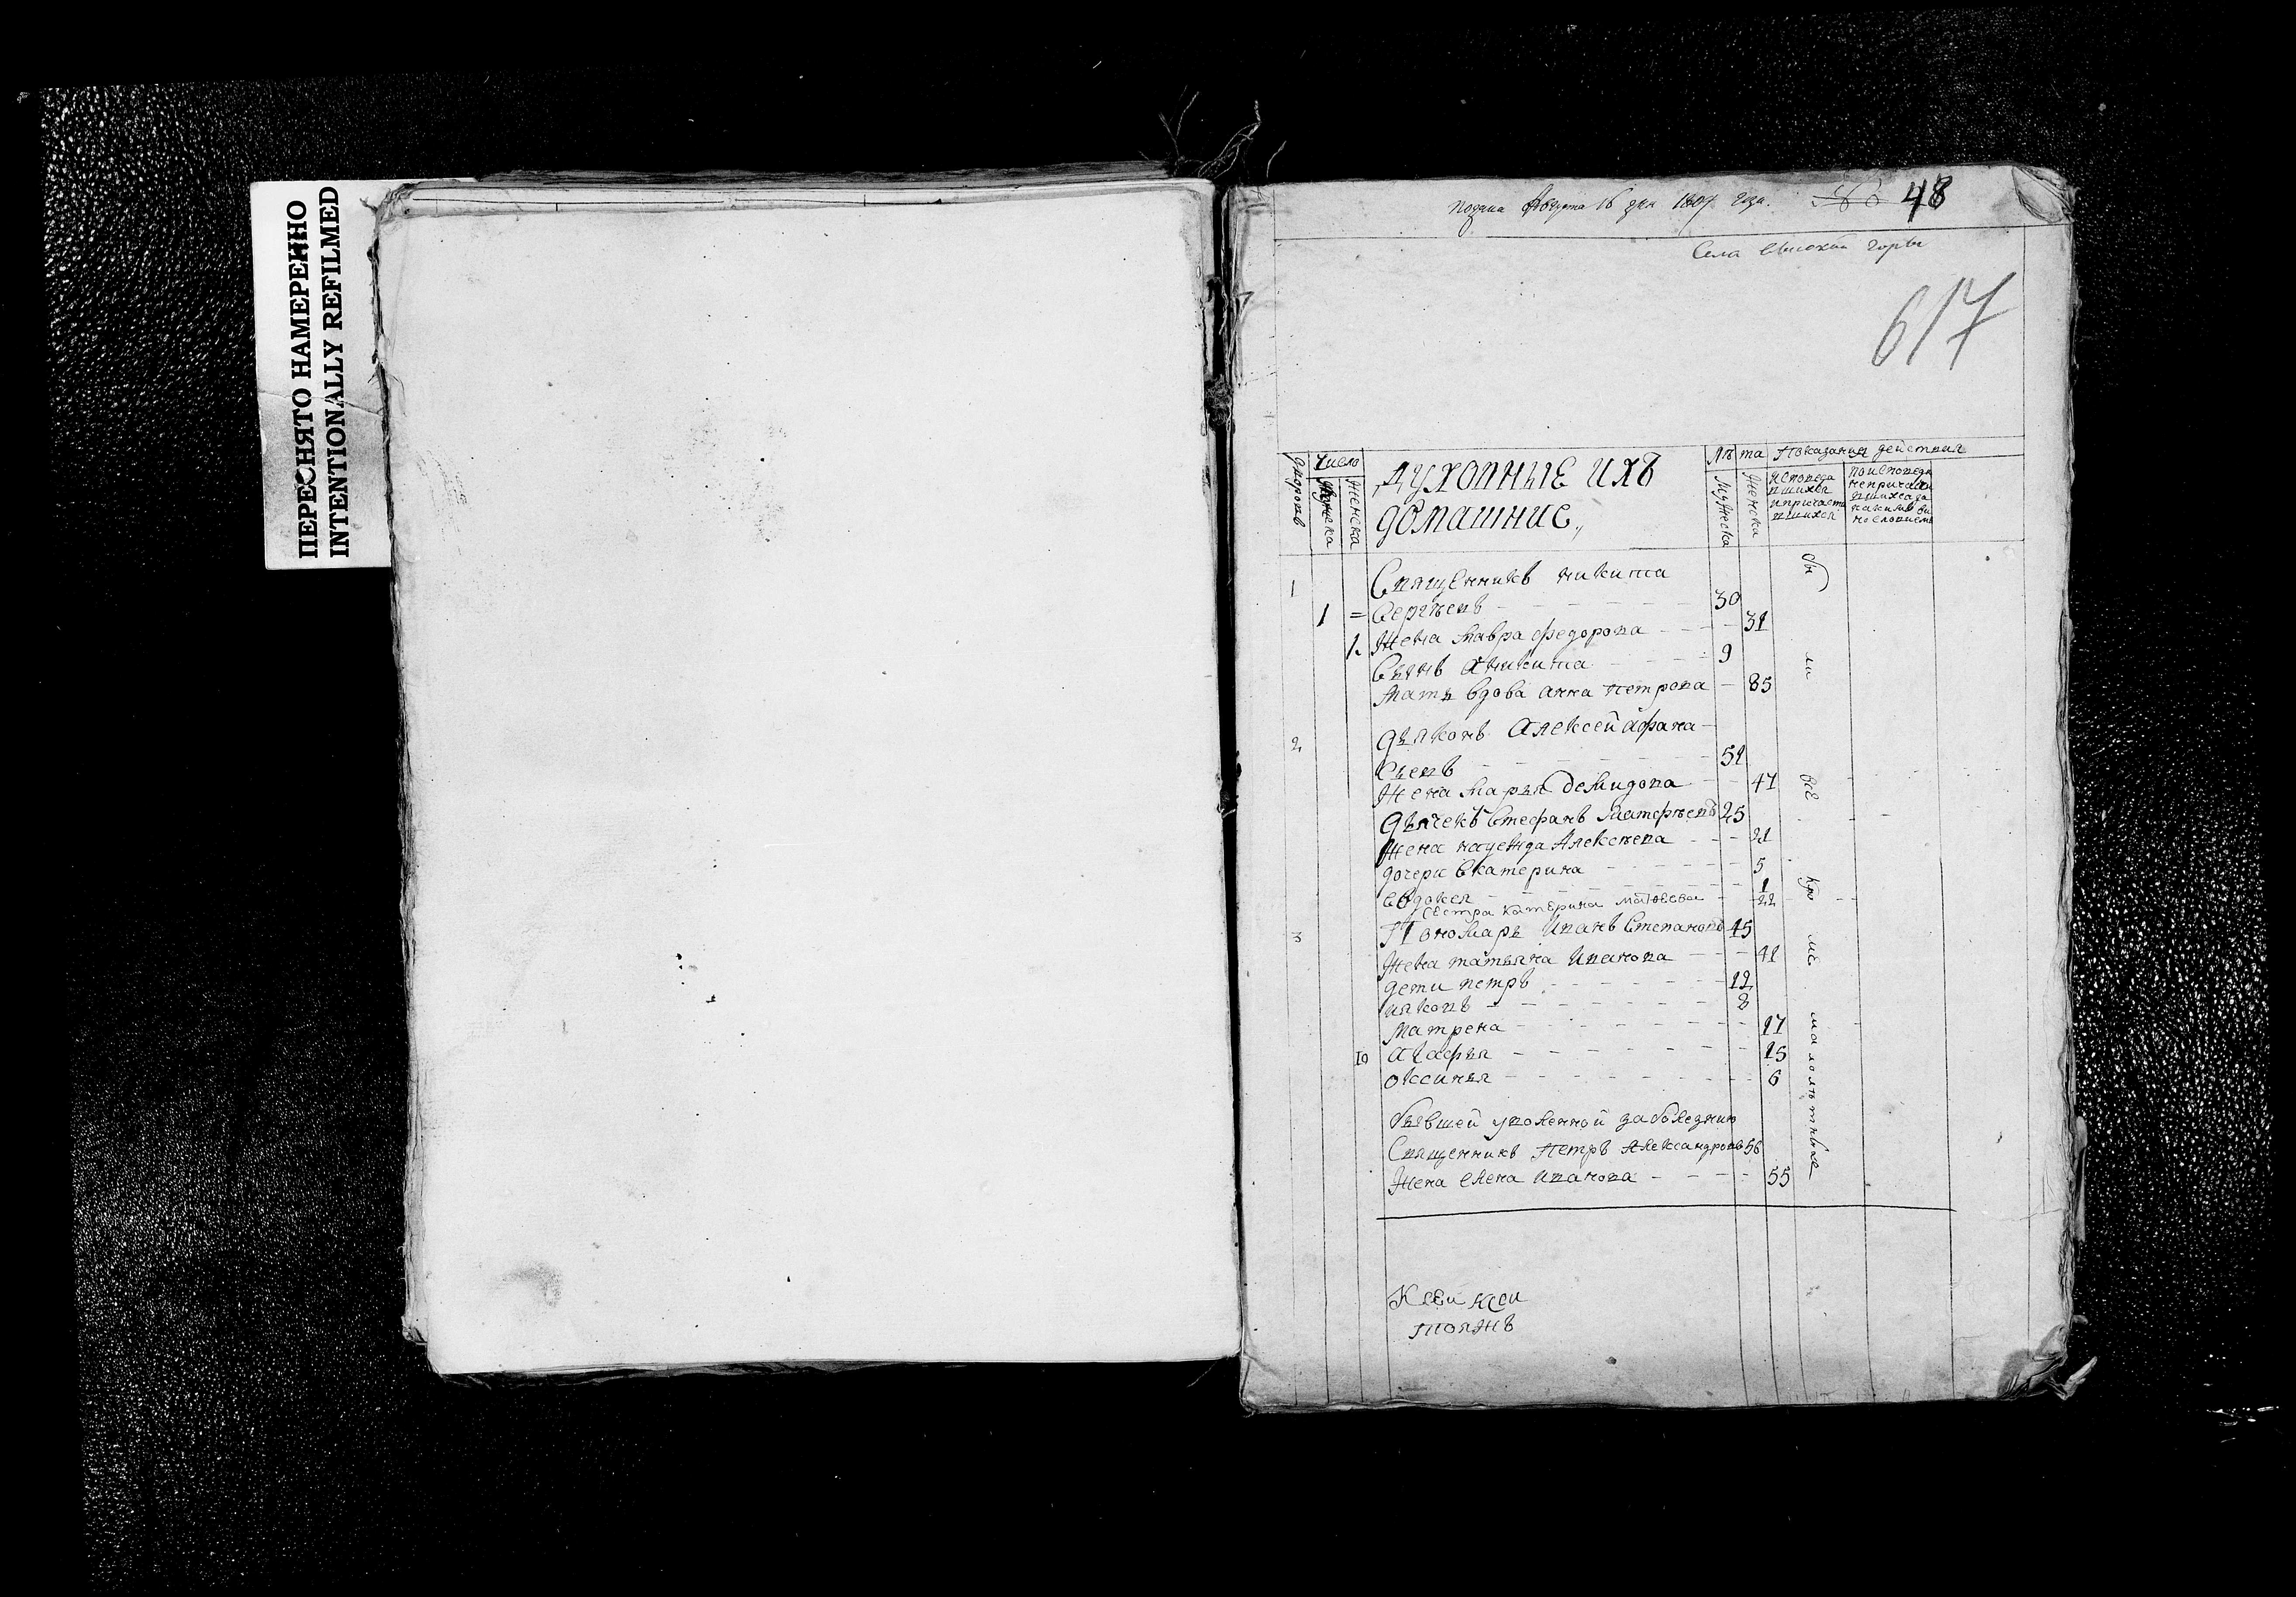 ПЕРЕСНЯТО НАМЕРЕННО
INTENTIONALLY REFILMED
подана Августа 16 дня 1807 года. 48
Села Высокой горы
617
дворовъ
Число
Мужеска
Женска
Духовные ихъ
домашние,,
Лѣта
Мужеска
Женска
Показанiя действия
исповеда
вшихся
и причасти
вшихся
по исповеди
не причаща
вшихся за
какимъ ви
нословиемъ
1 Священникъ никита
1 = Сергѣевъ 30
1. Жена мавра федорова 31
Сынъ аникита 9
Мать вдова анна петрова 85
2 Дьяконъ Алексей афана-
сьевъ 51
Жена марья демидова 47
Дьячекъ Стефанъ матфѣевъ 25
Жена надежда Алексѣева 21
дочери екатерина 5
евдокея 1
сестра катерина матвеева 22
3 Пономарь иванъ Степановъ 45
Жена татьяна иванова 41
дети петръ 12
яковъ 8
матрена 17
10 агафья 15
оксинья 6
бывшей уволенной за болезнию
Священникъ петръ Александровъ 56
Жена елена иванова 55
бы
ли
все
кро
ме
малолѣтныхъ
тояжъ